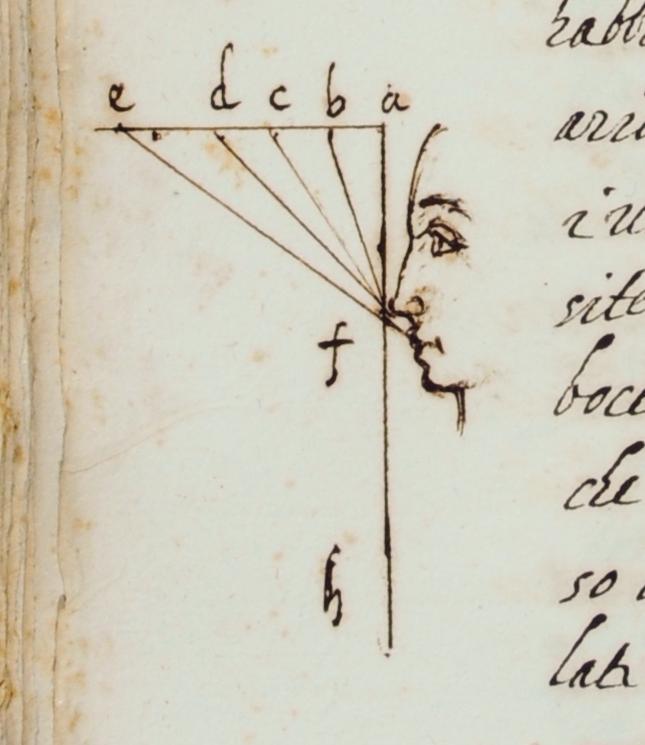 e d c b a
f
h
habb
arri
i
site
boce
che
so
lati